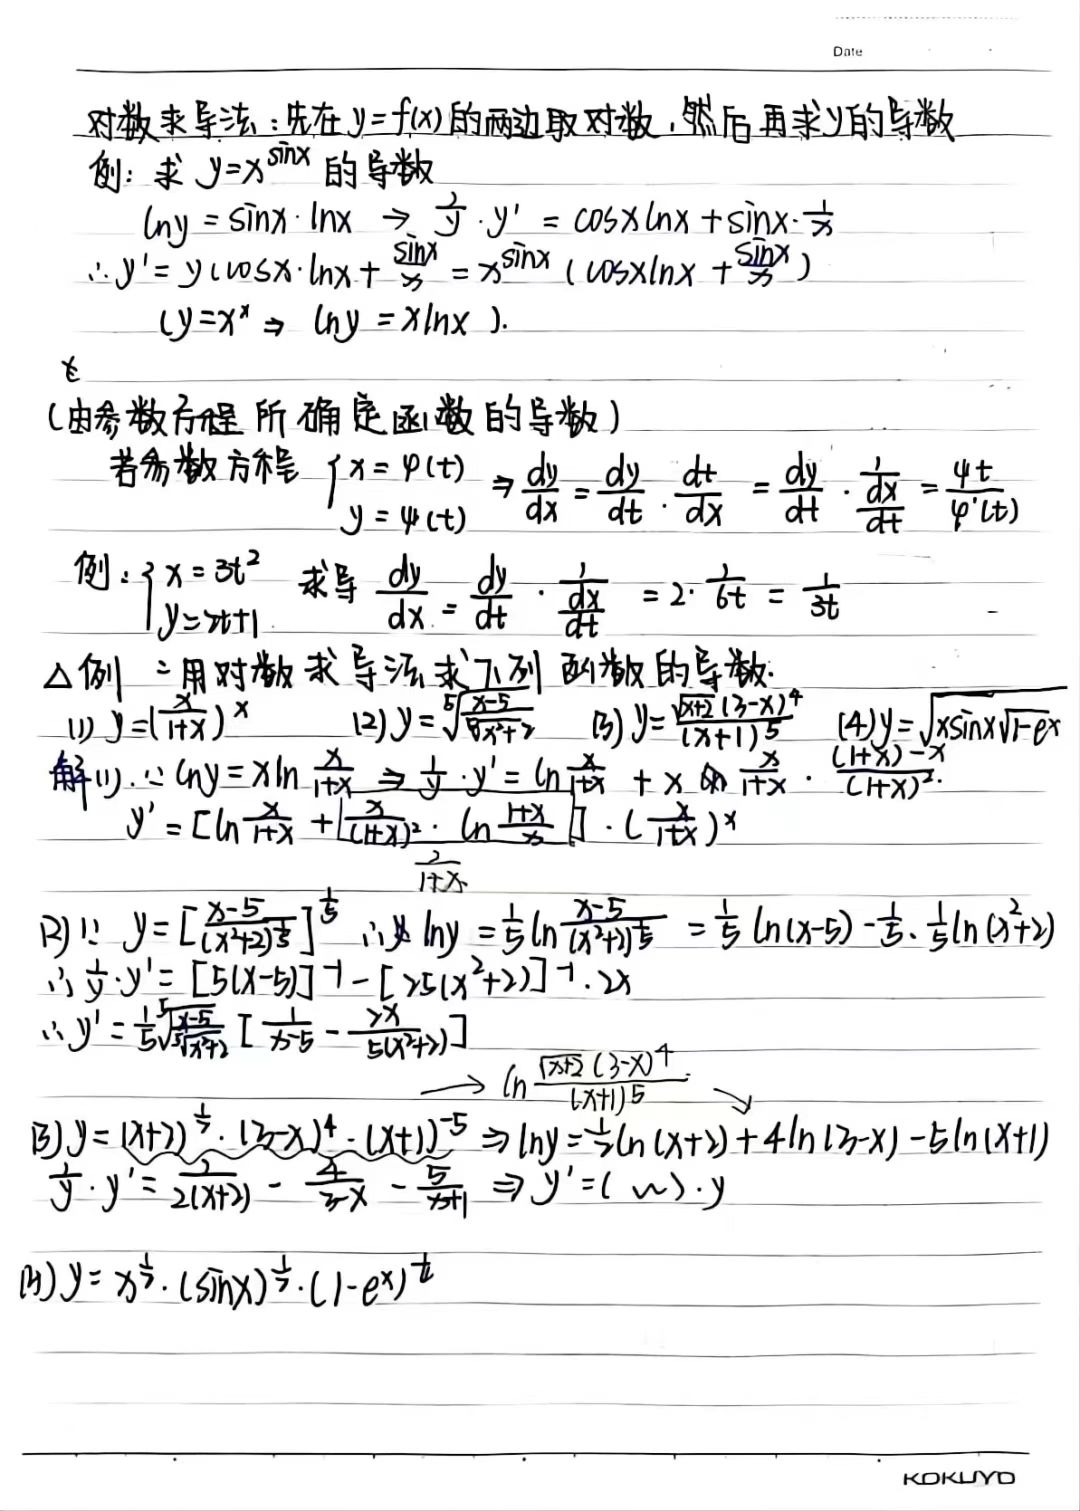 Date
对数求导法：先在y=f(x)的两边取对数，然后再求y的导数
例：求 y=x^sinx 的导数
lny = sinx·lnx → 1/y · y' = cosxlnx + sinx·1/x
∴y' = y(cosx·lnx + sinx/x = x^sinx (cosxlnx + sinx/x)
(y=x^x ⇒ lny = xlnx ).
(由参数方程所确定函数的导数)
若参数方程 { x = φ(t) y = ψ(t) ⇒ dy/dx = dy/dt · dt/dx = dy/dt · 1/(dx/dt) = ψt/φ'(t)
例：{ x = 3t² y=2t+1 求导 dy/dx = dy/dt · 1/(dx/dt) = 2· 1/6t = 1/3t
△例 用对数求导法求下列函数的导数.
(1) y=(x/(1+x))^x (2) y=⁵√((x-5)/⁵√(x²+2)) (3) y=√(x+2)(3-x)⁴/(x+1)⁵ (4) y=√(xsinx√(1-e^x))
解(1). ∵ lny = xln x/(1+x) ⇒ 1/y · y' = ln x/(1+x) + x x/(1+x) · ((1+x)-x)/(1+x)².
y' = [ln x/(1+x) + x/(1+x)² · ln (1+x)/x] · (x/(1+x))^x
1/(1+x)
(2) ∵ y = [(x-5)/(x²+2)^(1/5)]^(1/5) ∴ lny = 1/5 ln (x-5)/(x²+2)^(1/5) = 1/5 ln(x-5) - 1/5 · 1/5 ln(x²+2)
∴ 1/y · y' = [5(x-5)]⁻¹ - [25(x²+2)]⁻¹ · 2x
∴ y' = 1/5 ⁵√((x-5)/⁵√(x²+2)) [1/(x-5) - 2x/5(x²+2)]
→ ln √(x+2)(3-x)⁴/(x+1)⁵ ↘
(3). y = (x+2)^(1/2) · (3-x)⁴ · (x+1)⁻⁵ ⇒ lny = 1/2 ln(x+2) + 4ln(3-x) - 5ln(x+1)
1/y · y' = 1/2(x+2) - 4/(3-x) - 5/(x+1) ⇒ y' = ( ~ ) · y
(4) y = x^(1/2) · (sinx)^(1/2) · (1-e^x)^(1/4)
KOKUYO